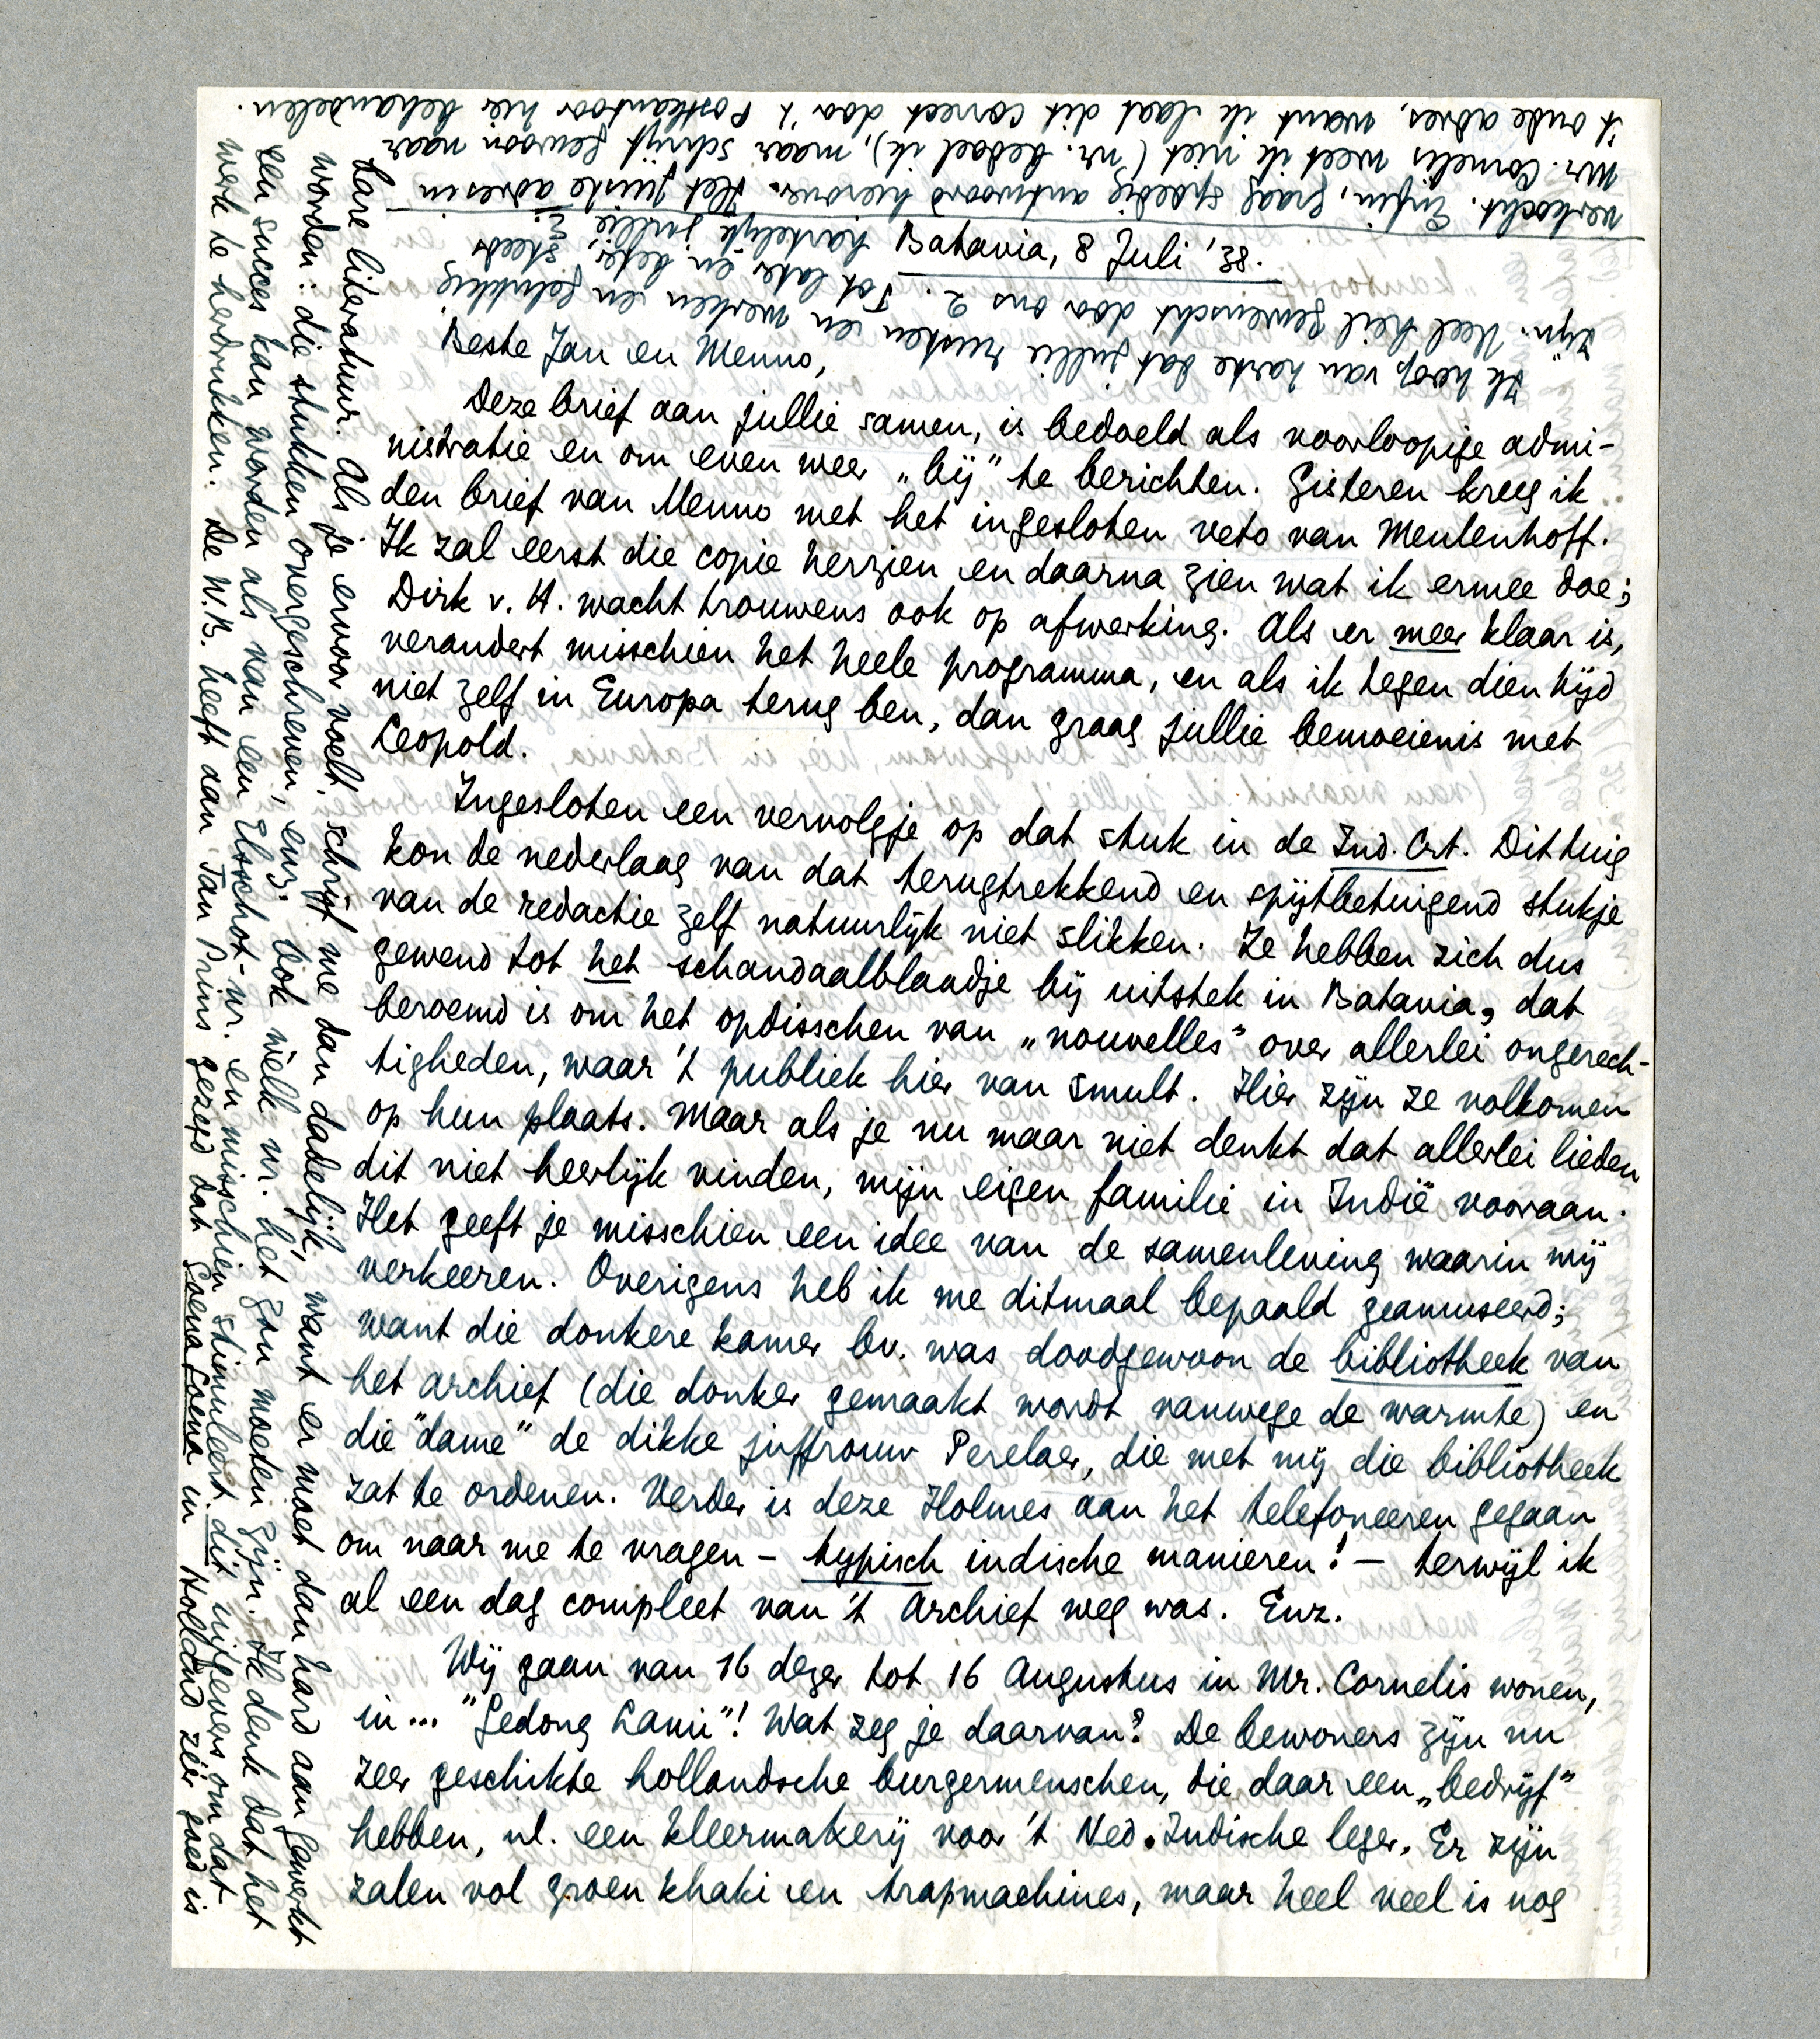 Batavia, 8 Juli '38.
Beste Jan en Menno,
Deze brief aan jullie samen, is bedoeld als voorloopige admi-
nistratie en om even weer „bij” te berichten. Gisteren kreeg ik
den brief van Menno met het ingesloten veto van Meulenhoff.
Ik zal eerst die copie herzien en daarna zien wat ik ermee doe;
Dirk v. H. wacht trouwens ook op afwerking. Als er meer klaar is,
verandert misschien het heele programma, en als ik tegen dien tijd
niet zelf in Europa terug ben, dan graag jullie bemoeienis met
Leopold.
Ingesloten een vervolgje op dat stuk in de Ind. Crt. Dit tuig
kon de nederlaag van dat terugtrekkend en spijtbetuigend stukje
van de redactie zelf natuurlijk niet slikken. Ze hebben zich dus
gewend tot het schandaalblaadje bij uitstek in Batavia, dat
beroemd is om het opdisschen van „nouvelles” over allerlei ongerech-
tigheden, waar 't publiek hier van smult. Hier zijn ze volkomen
op hun plaats. Maar als je nu maar niet denkt dat allerlei lieden
dit niet heerlijk vinden, mijn eigen familie in Indië vooraan.
Het geeft je misschien een idee van de samenleving waarin wij
verkeeren. Overigens heb ik me ditmaal bepaald geamuseerd;
want die donkere kamer bv. was doodgewoon de bibliotheek van
het archief (die donker gemaakt wordt vanwege de warmte) en
die "dame" de dikke juffrouw Perelaer, die met mij die bibliotheek
zat te ordenen. Verder is deze Holmes aan het telefoneeren gegaan
om naar me te vragen – typisch indische manieren! – terwijl ik
al een dag compleet van 't Archief weg was. Enz.
Wij gaan van 16 dezer tot 16 Augustus in Mr. Cornelis wonen,
in... "Gedong Lami"! Wat zeg je daarvan? De bewoners zijn nu
zeer geschikte hollandsche burgermenschen, die daar een „bedrijf”
hebben, nl. een kleermakerij voor 't Ned. Indische leger. Er zijn
zalen vol groen khaki en trapmachines, maar heel veel is nog
lare literatuur. Als je ervoor voelt, schrijf me dan dadelijk, want er moet dan hard aan gewerkt
worden: die stukken overgeschreven, enz. Ook wèlk nr. het zou moeten zijn. Ik denk dat het
een succes kan worden als van een Elsschot-nr. en misschien stimuleert dit uitgevers om dat
werk te herdrukken. De W.B. heeft aan Jan Prins gezegd dat Goena Goena in Holland zéér goed is
verkocht. Enfin, graag spoedig antwoord hierover. Het juiste adres in
Mr. Cornelis weet ik niet (nr. bedoel ik), maar schrijf gewoon naar
't oude adres, want ik laat dit correct door 't Postkantoor hier behandelen.
Ik hoop van harte dat jullie rusten en werken en gelukkig
zijn. Veel heil gewenscht door ons 2. Tot later en beter,
hartelijk jullie
steeds
E.